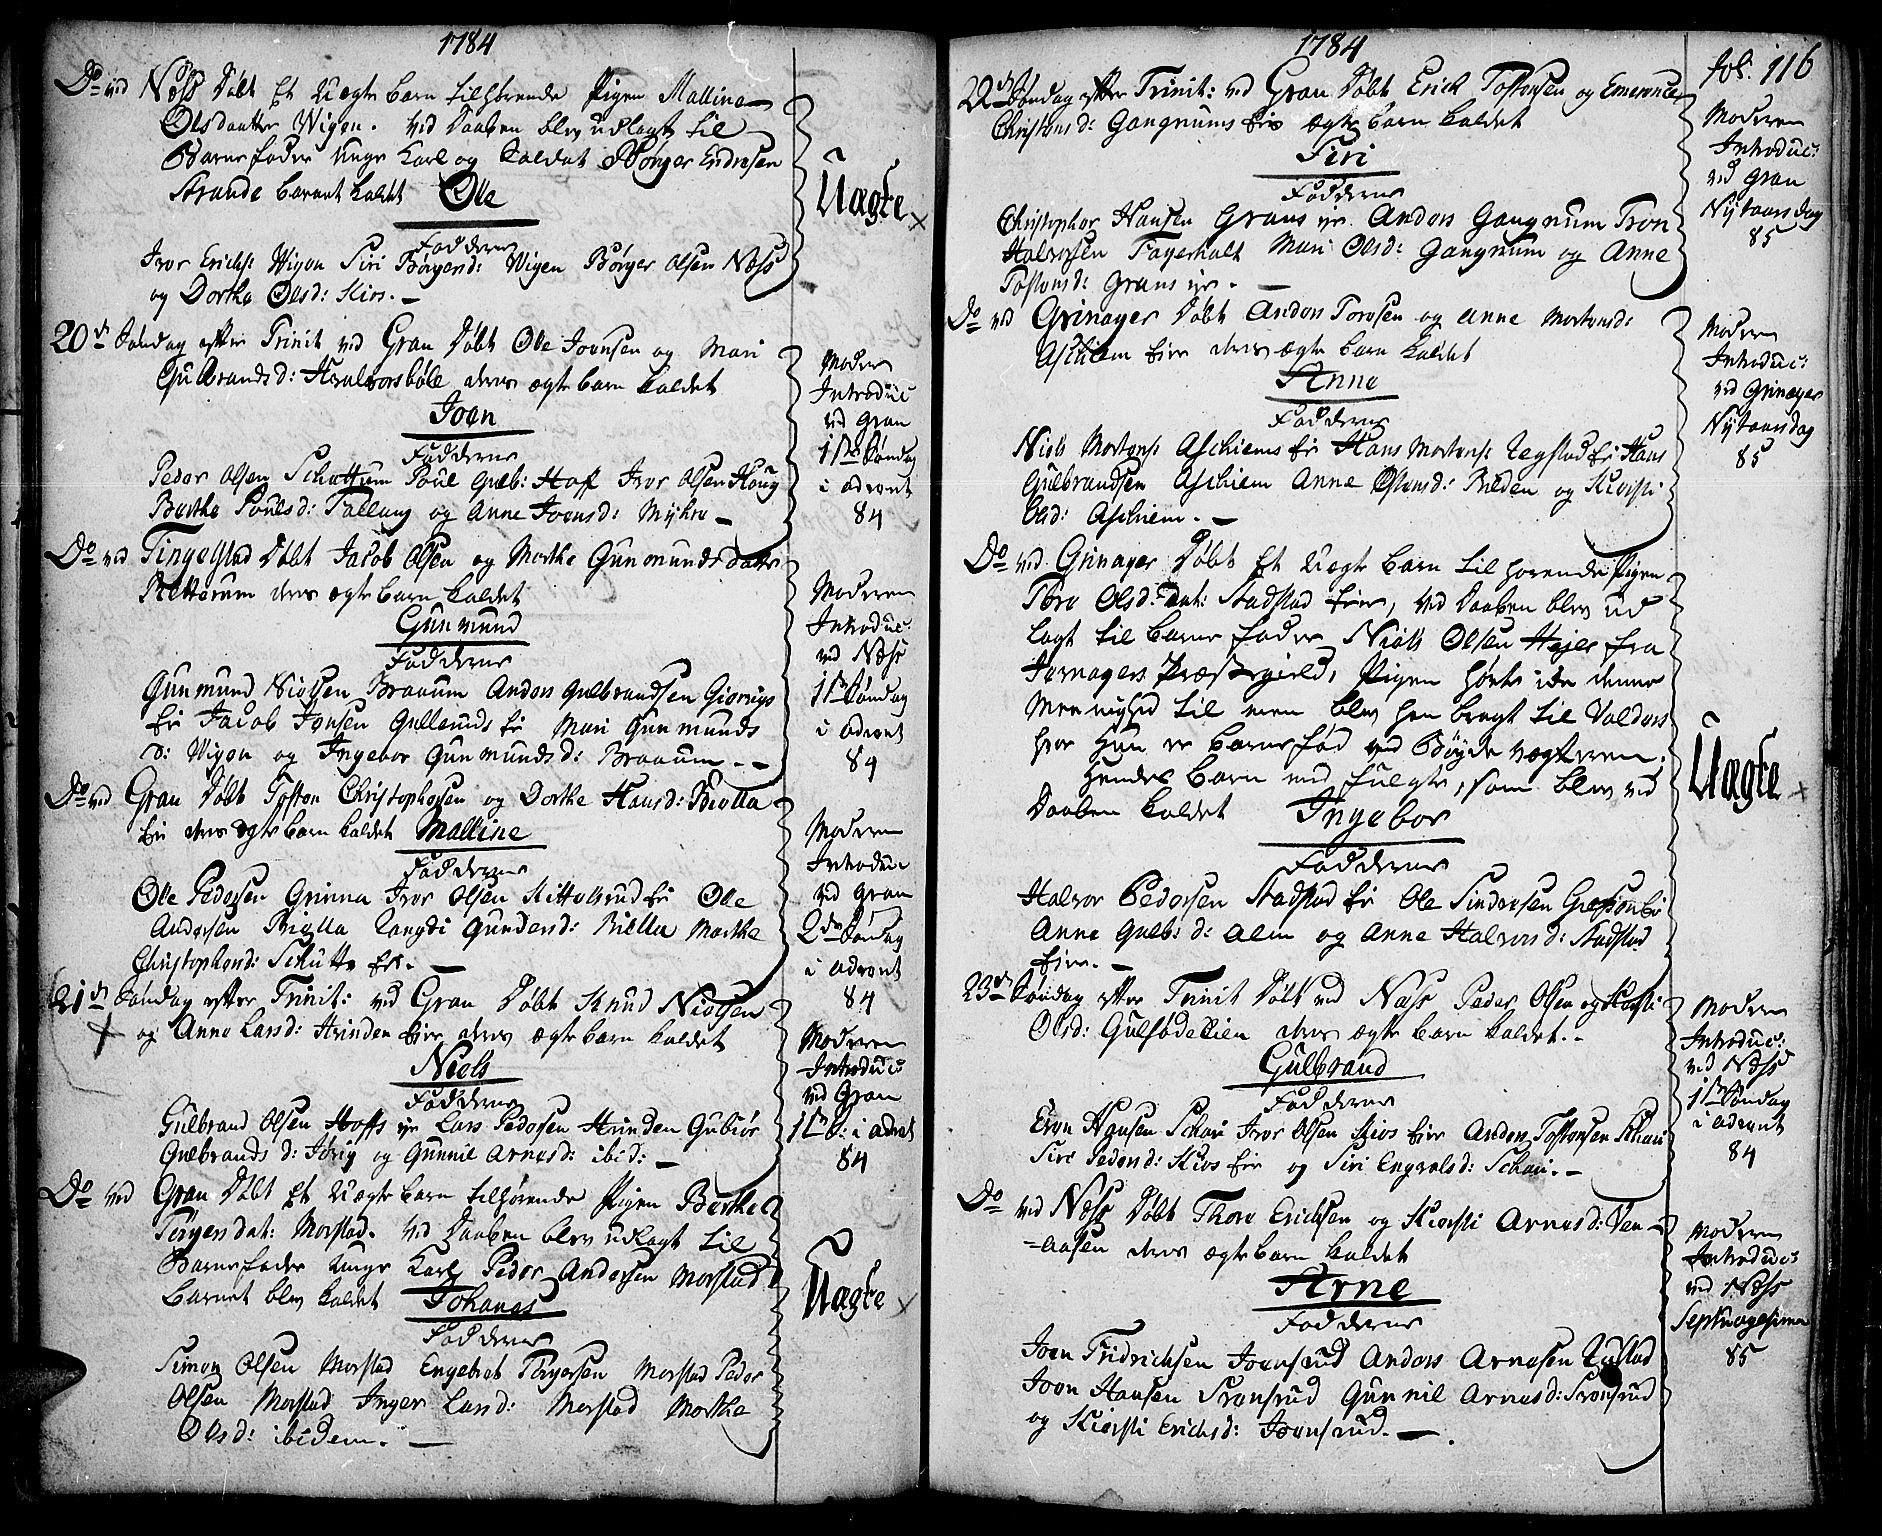 1784
Do ved Næss Døbt Et Uægte barn tilhørende Pigen Mallina
Olsdaatter Wigen. Ved Daaben blev udlagt til
Barnefader unge Karl og Soldat Børger Endresen
Strande barnet kaldt Ole
Uægte
Fadderne
Iver Erichs: Wigen Siri Børgersd: Wigen Børger Olsen Næss
og Dorthe Olsd: Kios.
20de Søndag efter Trinit ved Gran Døbt Ole Joensen og Mari
Gulbrandsd: Halvorsbøle deres ægte barn kaldet
Joen
Fadderne
Peder Olsen Schattum Poul Gulb: Hoff Iver Olsen Houg
Berthe Poulsd: Tallang og Anne Joensd: Myhre
Moderen
Introduc
ved Gran
1ste Søndag
i advent
84
Do ved Tingelstad Døbt Jacob Olsen og Marthe Gunmunds datter
deres ægte barn kaldet
Gunmund
Fadderne
Gunmund Nielsen Braaum Anders Gulbrandsen
Eie Jacob Jonsen Gullunds Eie Mari Gunmunds
d: Wigen og Ingebor Gunmundsd: Braaum.
Moderen
Introduc:
ved Næss
1ste Søndag
i advent
84
Do ved Gran Døbt Tosten Christophersen og Dorthe Hansd: Biella
Eie deres ægte barn kaldet Malline
Fadderne
Ole Pedersen Grinna Iver Olsen Kittelsrud Eie Ole
Andersen Biella Langdi Gundersd: Biella Marthe
Christophersd: Schutte Eie.
Moderen
Introduc
ved Gran
2den Søndag
i advent
84
21de Søndag efter Trinit: ved Gran Døbt Knud Nielsen
og Anne Larsd: Hvinden Eier deres ægte barn kaldet
Niels
Fadderne
Gulbrand Olsen Hoffs eje Lars Pedersen Hvinden Gubiør
Gulbrands d: og Gunnil Arnesd: ibid:
Moderen
Introduc:
ved Gran
1ste S: i advent
84
Do ved Gran Døbt Et Uægte barn tilhørende Pigen Berthe
Torgersdat: Morstad. Ved Daaben blev udlagt til
Barnefader unge Karl Peder Andersen Morstad
Barnet blev kaldet Johanes
Uægte
Fadderne
Simon Olsen Morstad Engebret Torgersen Morstad Peder
Olsen Morstad Inger Larsd: Morstad Marthe
Olsd: ibidem.
1784
fol. 116
22de Søndag efter Trinit: ved Gran Døbt Erich Tostensen og Emerence
Christensd: Gangnums Eie ægte barn kaldet
Siri
Fadderne
Christopher Hansen Grans eje Anders Gangnum Tron
Halvorsen Fagerholt Mari Olsd: Gangnum og Anne
Tostensd: Grans eje.
Moderen
Introduc:
ved Gran
Nytaarsdag
85
Do ved Grinager Døbt Anders Torosen og Anne Mortensd:
Aschiem Eier deres ægte barn kaldet
Anne
Fadderne
Niels Mortens: Aschiems Eie Hans Mortens: Tegstad Eie Hans
Gulbrandsen Aschiem Anne Ostensd: Bilden og Kiersti
Olsd: Aschiem.
Moderen
Introduc:
ved Grinager
Nytaarsdag
85
Do ved Grinager Døbt Et Uægte barn tilhørende Pigen
Tore Olsd: Stadstad Eier, ved Daaben blev ud
lagt til barnefader Niels Olsen fra
Jevnagers Præstegield, Pigen hørte ikke denne
Menighed til men blev hen bragt til Valders
hvor hun er barnefød ved Bøyde vægteren.
hendes barn med fulgte, som blev ved
Daaben kaldet Ingebor
Uægte
Fadderne
Halvor Pedersen Stadstad Eie Ole Sindersen
Anne Gulb: d: Alm og Anne Halvorsd: Stadstad
Eier.
23de Søndag efter Trinit Døbt ved Næss Peder Olsen og Kiersti
Olsd: Gulsødelien deres ægte barn kaldet.
Gulbrand
Fadderne
Even Hansen Schari Iver Olsen Kios Eier Anders Tostensen Schari
Siri Pedersd: Kios Eie og Siri Engvalsd: Schari.
Moderen
Introduc:
ved Næss
1ste Søndag
i advent
84
Do ved Næss Døbt Thore Erichsen og Kiersti Arnesd: Ven
=aasen deres ægte barn kaldet
Arne
Fadderne
Joen Fridrichsen Joensrud Anders Arnesen
Joen Hansen Tronsrud Gunnil Arnesd: Tronsrud
og Kiersti Erichsd: Joensrud.
Moderen
Introduc:
ved Næss
Septuagesima
85